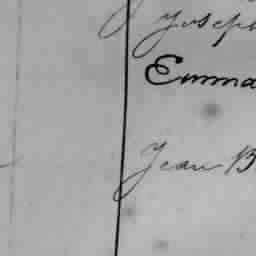 Joseph
Emma
Jean B